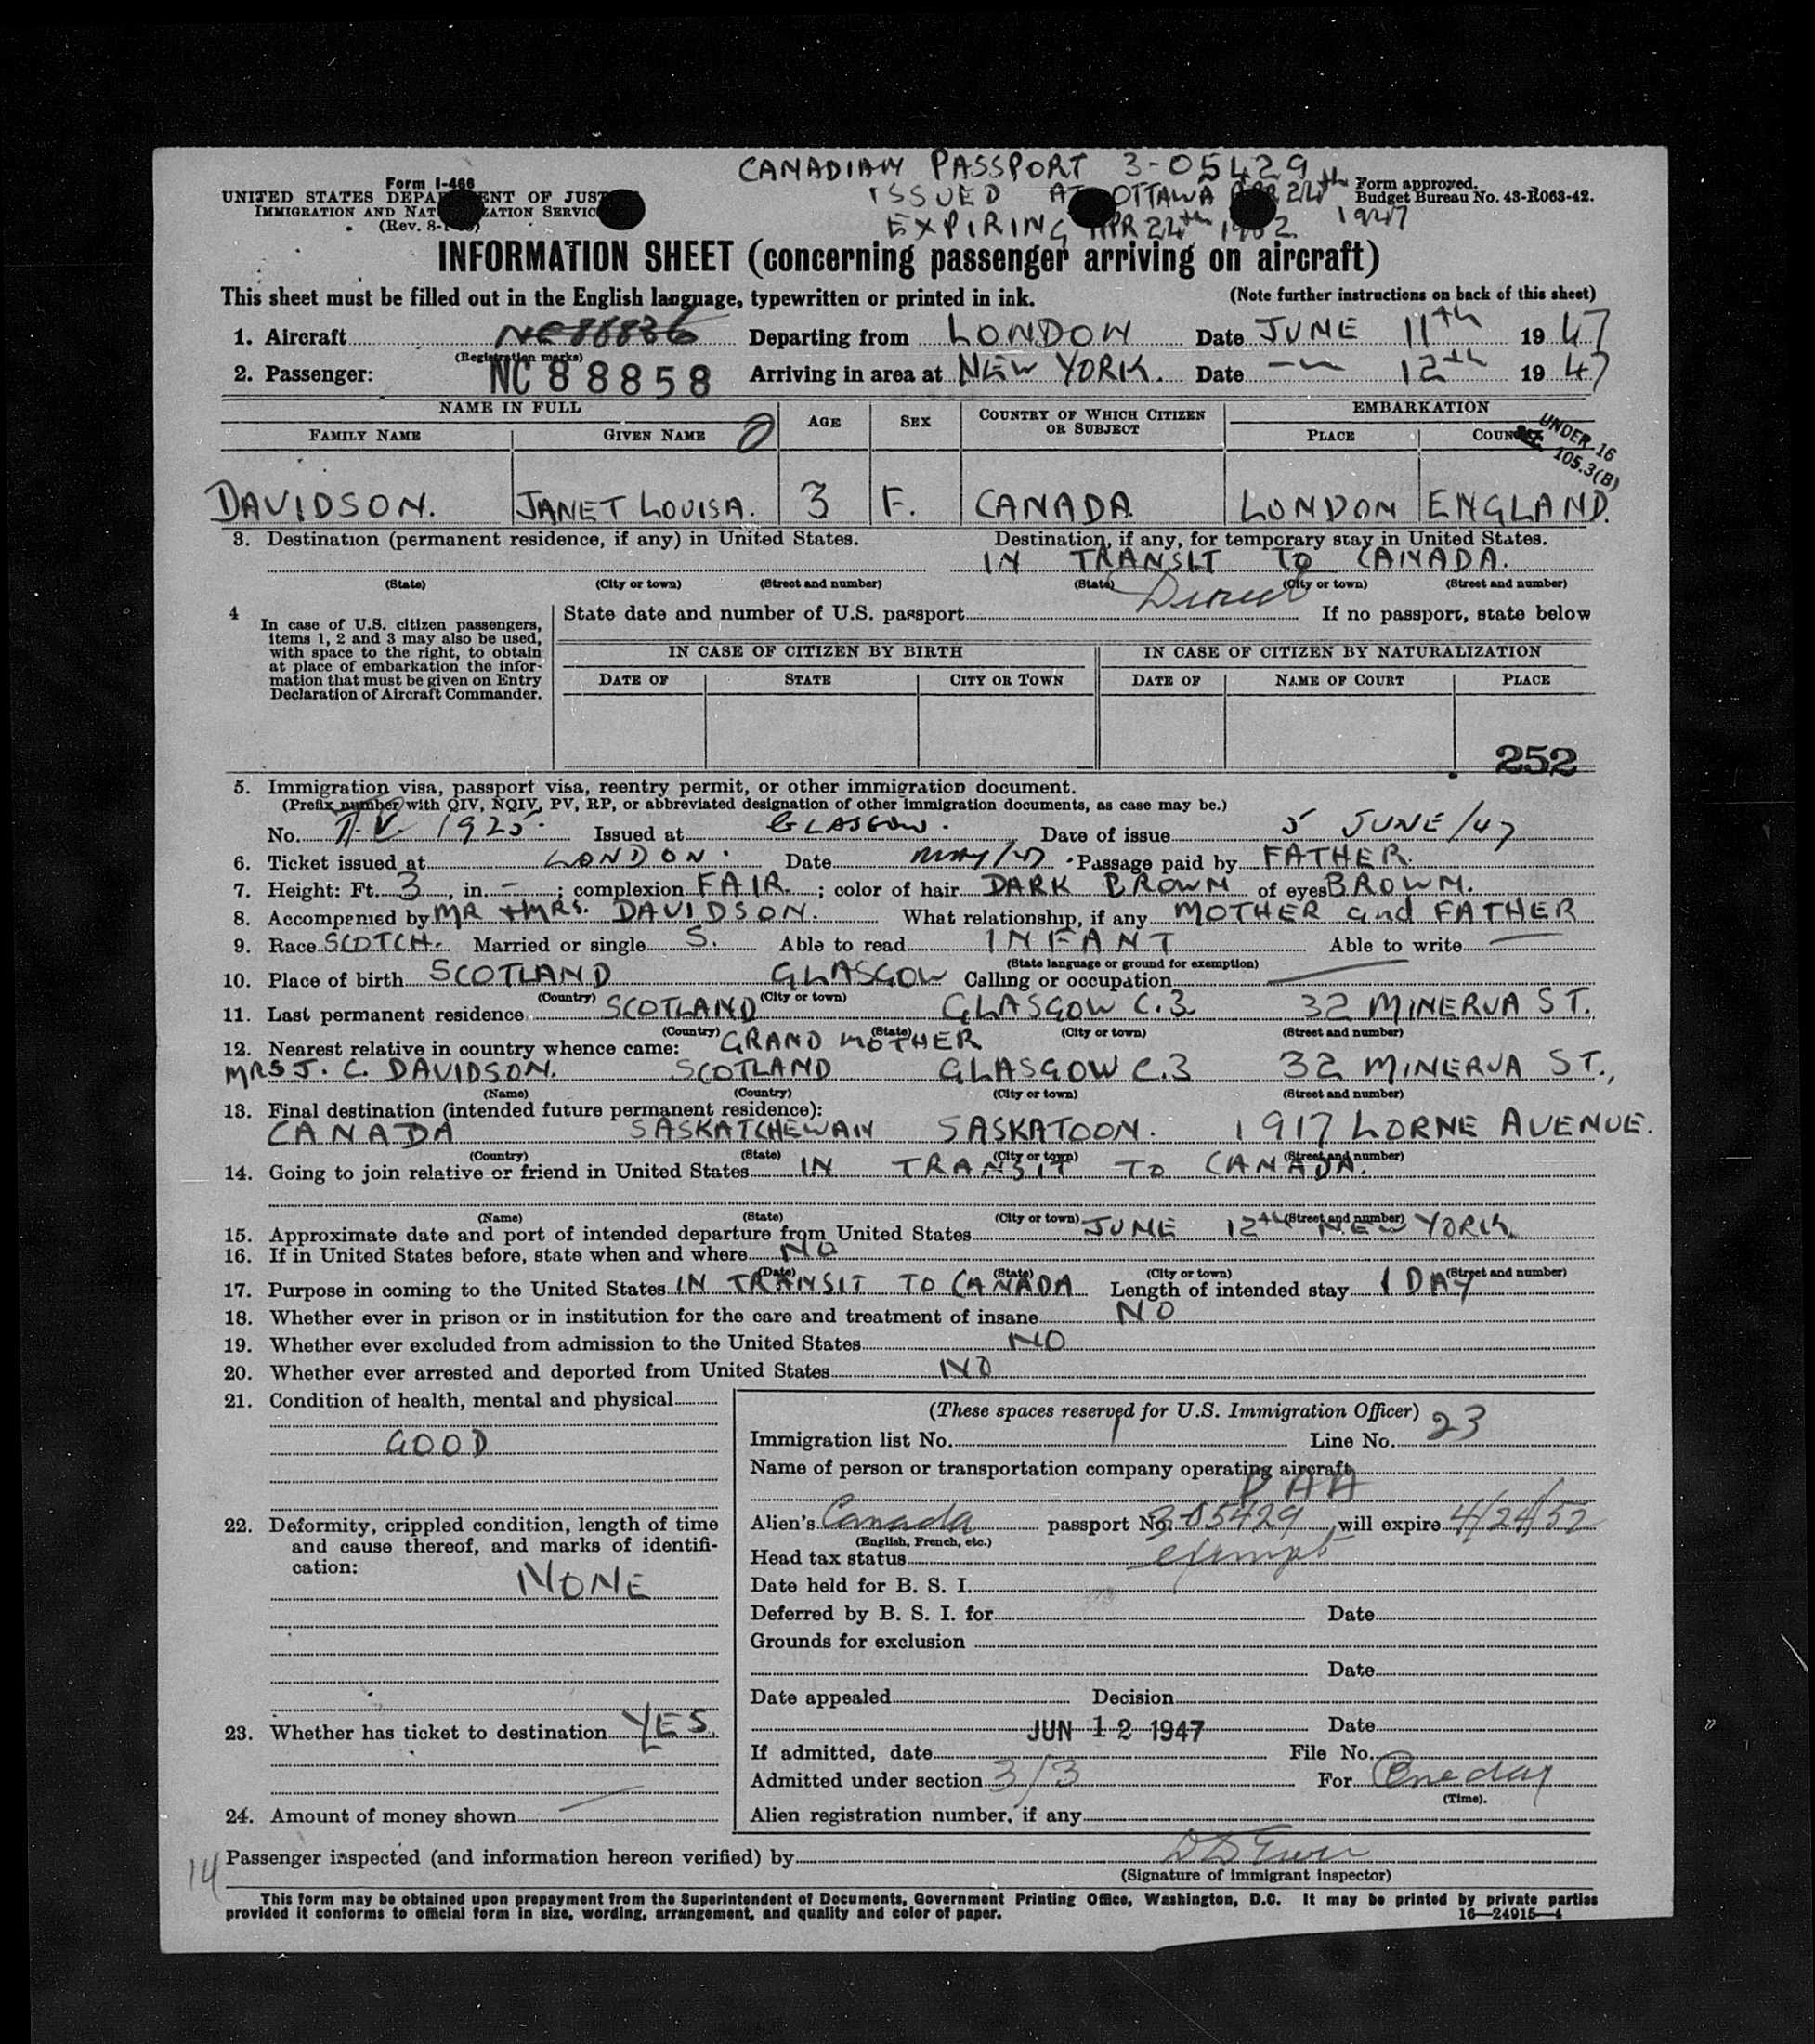 CANADIAN PASSPORT 3-05429
Form I-466
UNITED STATES DEPA ENT OF JUST
ISSUED AT OTTAWA APR 24th
Form approved.
IMMIGRATION AND NAT ZATION SERVIC
Budget Bureau No. 43-R063-42.
(Rev. 8-
EXPIRING APR 24th 1952. 1947
INFORMATION SHEET (concerning passenger arriving on aircraft)
This sheet must be filled out in the English language, typewritten or printed in ink. (Note further instructions on back of this sheet)
1. Aircraft NC88836 Departing from LONDON Date JUNE 11th 19 47
(Registration marks)
2. Passenger: NC 88858 Arriving in area at NEW YORK. Date 12th 19 47
NAME IN FULL AGE SEX COUNTRY OF WHICH CITIZEN OR SUBJECT EMBARKATION
FAMILY NAME GIVEN NAME PLACE COUN
UNDER 16
105.3(B)
DAVIDSON. JANET LOUISA. 3 F. CANADA. LONDON ENGLAND.
3. Destination (permanent residence, if any) in United States. Destination, if any, for temporary stay in United States.
IN TRANSIT TO CANADA.
(State) (City or town) (Street and number) (State) (City or town) (Street and number)
Direct
4 In case of U.S. citizen passengers, items 1, 2 and 3 may also be used, with space to the right, to obtain at place of embarkation the information that must be given on Entry Declaration of Aircraft Commander.
State date and number of U.S. passport If no passport, state below
IN CASE OF CITIZEN BY BIRTH IN CASE OF CITIZEN BY NATURALIZATION
DATE OF STATE CITY OR TOWN DATE OF NAME OF COURT PLACE
252
5. Immigration visa, passport visa, reentry permit, or other immigration document.
(Prefix number with QIV, NQIV, PV, RP, or abbreviated designation of other immigration documents, as case may be.)
No. T.V. 1925. Issued at GLASGOW. Date of issue 5 JUNE/47
6. Ticket issued at LONDON. Date MAY/47. Passage paid by FATHER.
7. Height: Ft. 3, in. -; complexion FAIR.; color of hair DARK BROWN of eyes BROWN.
8. Accompenied by MR + MRS. DAVIDSON. What relationship, if any MOTHER and FATHER
9. Race SCOTCH. Married or single S. Able to read INFANT Able to write —
(State language or ground for exemption)
10. Place of birth SCOTLAND GLASGOW Calling or occupation —
(Country) (City or town)
11. Last permanent residence SCOTLAND GLASGOW C.3 32 MINERVA ST.
(Country) (State) (City or town) (Street and number)
12. Nearest relative in country whence came: GRAND MOTHER
MRS J. C. DAVIDSON. SCOTLAND GLASGOW C.3 32 MINERVA ST.,
(Name) (Country) (City or town) (Street and number)
13. Final destination (intended future permanent residence):
CANADA SASKATCHEWAN SASKATOON. 1917 LORNE AVENUE.
(Country) (State) (City or town) (Street and number)
14. Going to join relative or friend in United States IN TRANSIT TO CANADA.
(Name) (State) (City or town) (Street and number)
15. Approximate date and port of intended departure from United States JUNE 12th NEW YORK.
16. If in United States before, state when and where NO
(Date) (State) (City or town) (Street and number)
17. Purpose in coming to the United States IN TRANSIT TO CANADA Length of intended stay 1 DAY
18. Whether ever in prison or in institution for the care and treatment of insane NO
19. Whether ever excluded from admission to the United States NO
20. Whether ever arrested and deported from United States NO
21. Condition of health, mental and physical
GOOD
22. Deformity, crippled condition, length of time
and cause thereof, and marks of identifi-
cation:
NONE
23. Whether has ticket to destination YES.
24. Amount of money shown —
(These spaces reserved for U.S. Immigration Officer)
Immigration list No. 1 Line No. 23
Name of person or transportation company operating aircraft
PAA
Alien's Canada passport No. 3-05429, will expire 4/24/52
(English, French, etc.)
Head tax status exempt
Date held for B. S. I.
Deferred by B. S. I. for Date
Grounds for exclusion
Date
Date appealed Decision
JUN 12 1947 Date
If admitted, date File No.
Admitted under section 3/3 For One day
(Time).
Alien registration number, if any
14 Passenger inspected (and information hereon verified) by
(Signature of immigrant inspector)
This form may be obtained upon prepayment from the Superintendent of Documents, Government Printing Office, Washington, D.C. It may be printed by private parties
provided it conforms to official form in size, wording, arrangement, and quality and color of paper. 16—24915—4